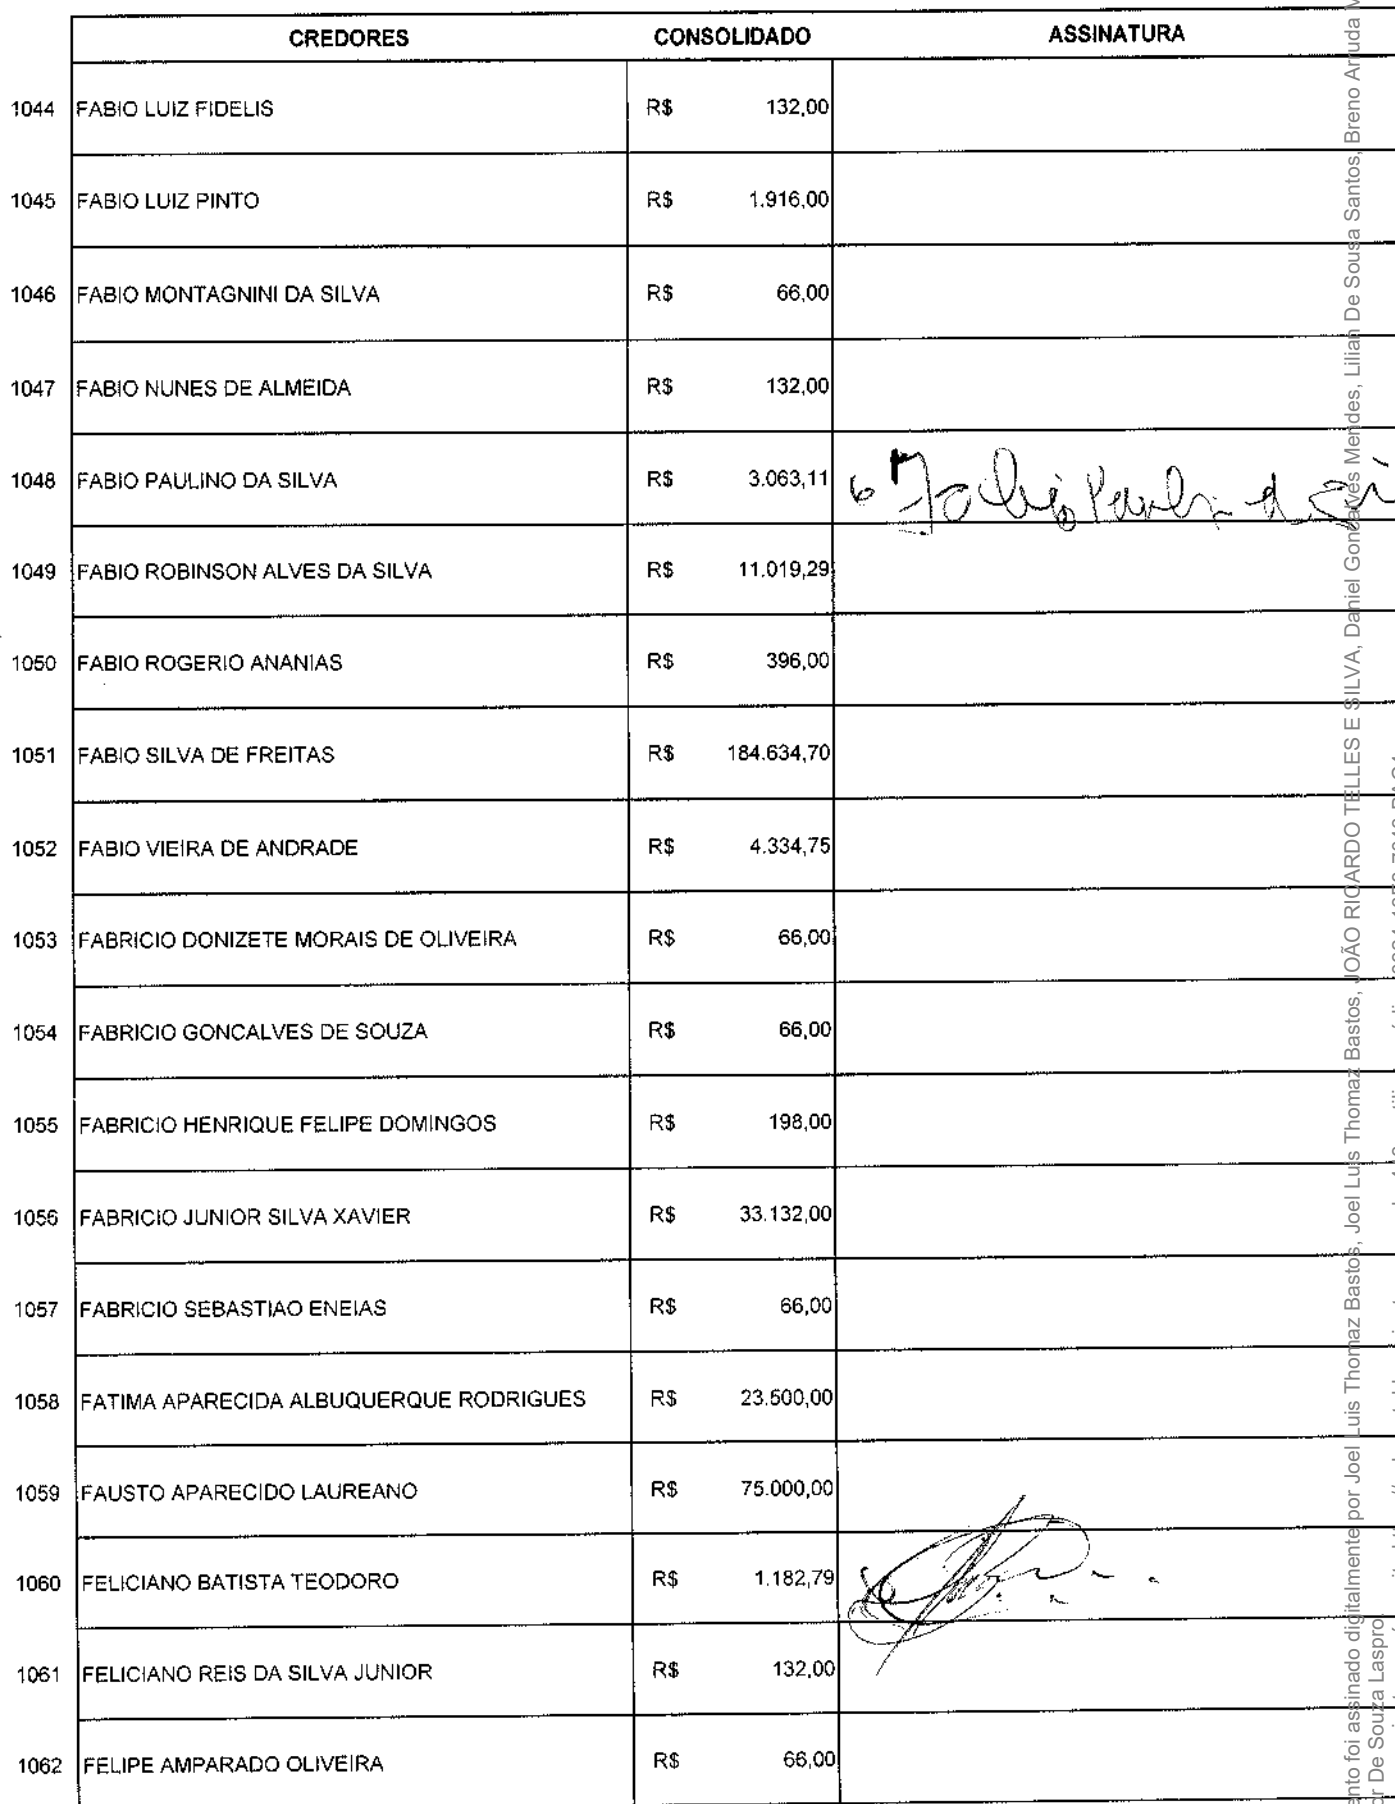 CREDORES CONSOLIDADO ASSINATURA
1044 FABIO LUIZ FIDELIS R$ 132,00
1045 FABIO LUIZ PINTO R$ 1.916,00
1046 FABIO MONTAGNINI DA SILVA R$ 66,00
1047 FABIO NUNES DE ALMEIDA R$ 132,00
1048 FABIO PAULINO DA SILVA R$ 3.063,11
1049 FABIO ROBINSON ALVES DA SILVA R$ 11.019,29
1050 FABIO ROGERIO ANANIAS R$ 396,00
1051 FABIO SILVA DE FREITAS R$ 184.634,70
1052 FABIO VIEIRA DE ANDRADE R$ 4.334,75
1053 FABRICIO DONIZETE MORAIS DE OLIVEIRA R$ 66,00
1054 FABRICIO GONCALVES DE SOUZA R$ 66,00
1055 FABRICIO HENRIQUE FELIPE DOMINGOS R$ 198,00
1056 FABRICIO JUNIOR SILVA XAVIER R$ 33.132,00
1057 FABRICIO SEBASTIAO ENEIAS R$ 66,00
1058 FATIMA APARECIDA ALBUQUERQUE RODRIGUES R$ 23.500,00
1059 FAUSTO APARECIDO LAUREANO R$ 75.000,00
1060 FELICIANO BATISTA TEODORO R$ 1.182,79
1061 FELICIANO REIS DA SILVA JUNIOR R$ 132,00
1062 FELIPE AMPARADO OLIVEIRA R$ 66,00
foi assinado digitalmente por Joel Luis Thomaz Bastos, Joel Luis Thomaz Bastos, JOÃO RICARDO TELLES E SILVA, Daniel Gonçalves Mendes, Lilian De Sousa Santos, Breno Arruda
De Souza Laspro